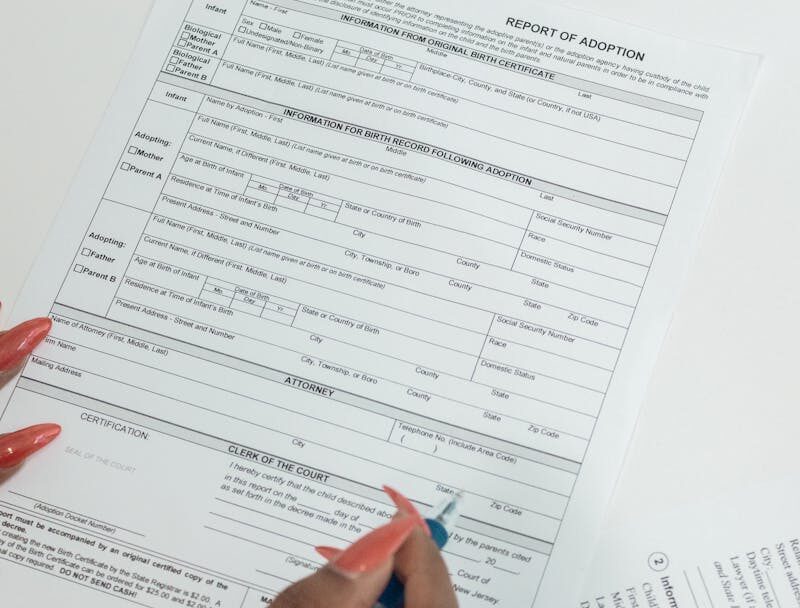 REPORT OF ADOPTION
either the attorney representing the adoptive parent(s) or the adoption agency having custody of the child
must occur PRIOR to completing information on the infant and natural parents in order to be in compliance with
the disclosure of identifying information on the child and the birth parents.
INFORMATION FROM ORIGINAL BIRTH CERTIFICATE
Infant
Name - First
Middle
Last
Sex
Male
Female
Undesignated/Non-Binary
Date of Birth
Mo.
Day
Yr.
Birthplace-City, County, and State (or Country, if not USA)
Biological
Mother
Parent A
Full Name (First, Middle, Last) (List name given at birth or on birth certificate)
Biological
Father
Parent B
Full Name (First, Middle, Last) (List name given at birth or on birth certificate)
INFORMATION FOR BIRTH RECORD FOLLOWING ADOPTION
Infant
Name by Adoption - First
Middle
Last
Adopting:
Mother
Parent A
Full Name (First, Middle, Last) (List name given at birth or on birth certificate)
Social Security Number
Current Name, if Different (First, Middle, Last)
Race
Age at Birth of Infant
Date of Birth
Mo.
Day
Yr.
State or Country of Birth
Domestic Status
Residence at Time of Infant's Birth
City
City, Township, or Boro
County
State
Present Address - Street and Number
County
State
Zip Code
Adopting:
Father
Parent B
Full Name (First, Middle, Last) (List name given at birth or on birth certificate)
Social Security Number
Current Name, if Different (First, Middle, Last)
Race
Age at Birth of Infant
Date of Birth
Mo.
Day
Yr.
State or Country of Birth
Domestic Status
Residence at Time of Infant's Birth
City
City, Township, or Boro
County
State
Present Address - Street and Number
County
State
Zip Code
ATTORNEY
Name of Attorney (First, Middle, Last)
Telephone No. (Include Area Code)
( )
Firm Name
Mailing Address
City
State
Zip Code
CLERK OF THE COURT
CERTIFICATION:
SEAL OF THE COURT
I hereby certify that the child described above
by the parents cited
in this report on the day of
20
as set forth in the decree made in the
Court of
New Jersey.
(Adoption Docket Number)
(Signature
port must be accompanied by an original certified copy of the
decree.
creating the new Birth Certificate by the State Registrar is $2.00. A
y of the Birth Certificate can be ordered for $25.00 and $2.00
nal copy required. DO NOT SEND CASH!
2
Inform
Child's
First
Street address
City:
Daytime tele
Lawyer (if
and State